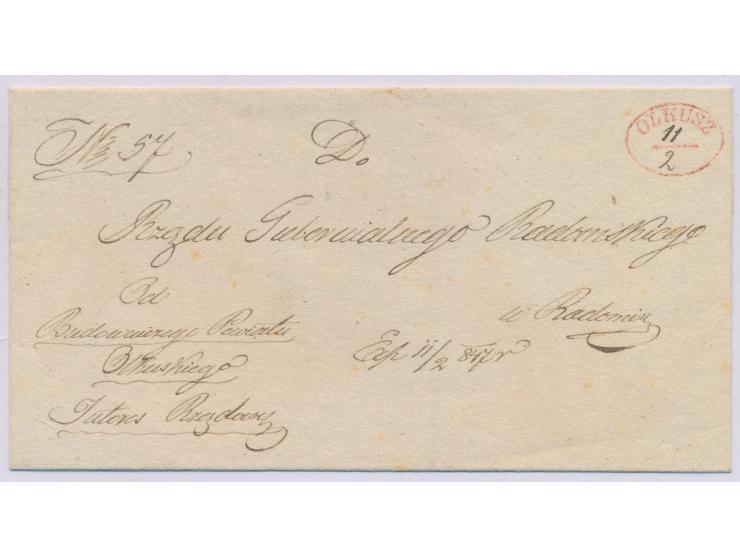 No 57
Do
OLKUSZ
11
2
Rządu Gubernialnego Radomskiego
w Radomiu
Od
Budowniczego Powiatu
Olkuskiego
Exp 11/2 847 r
Interes Rządowy